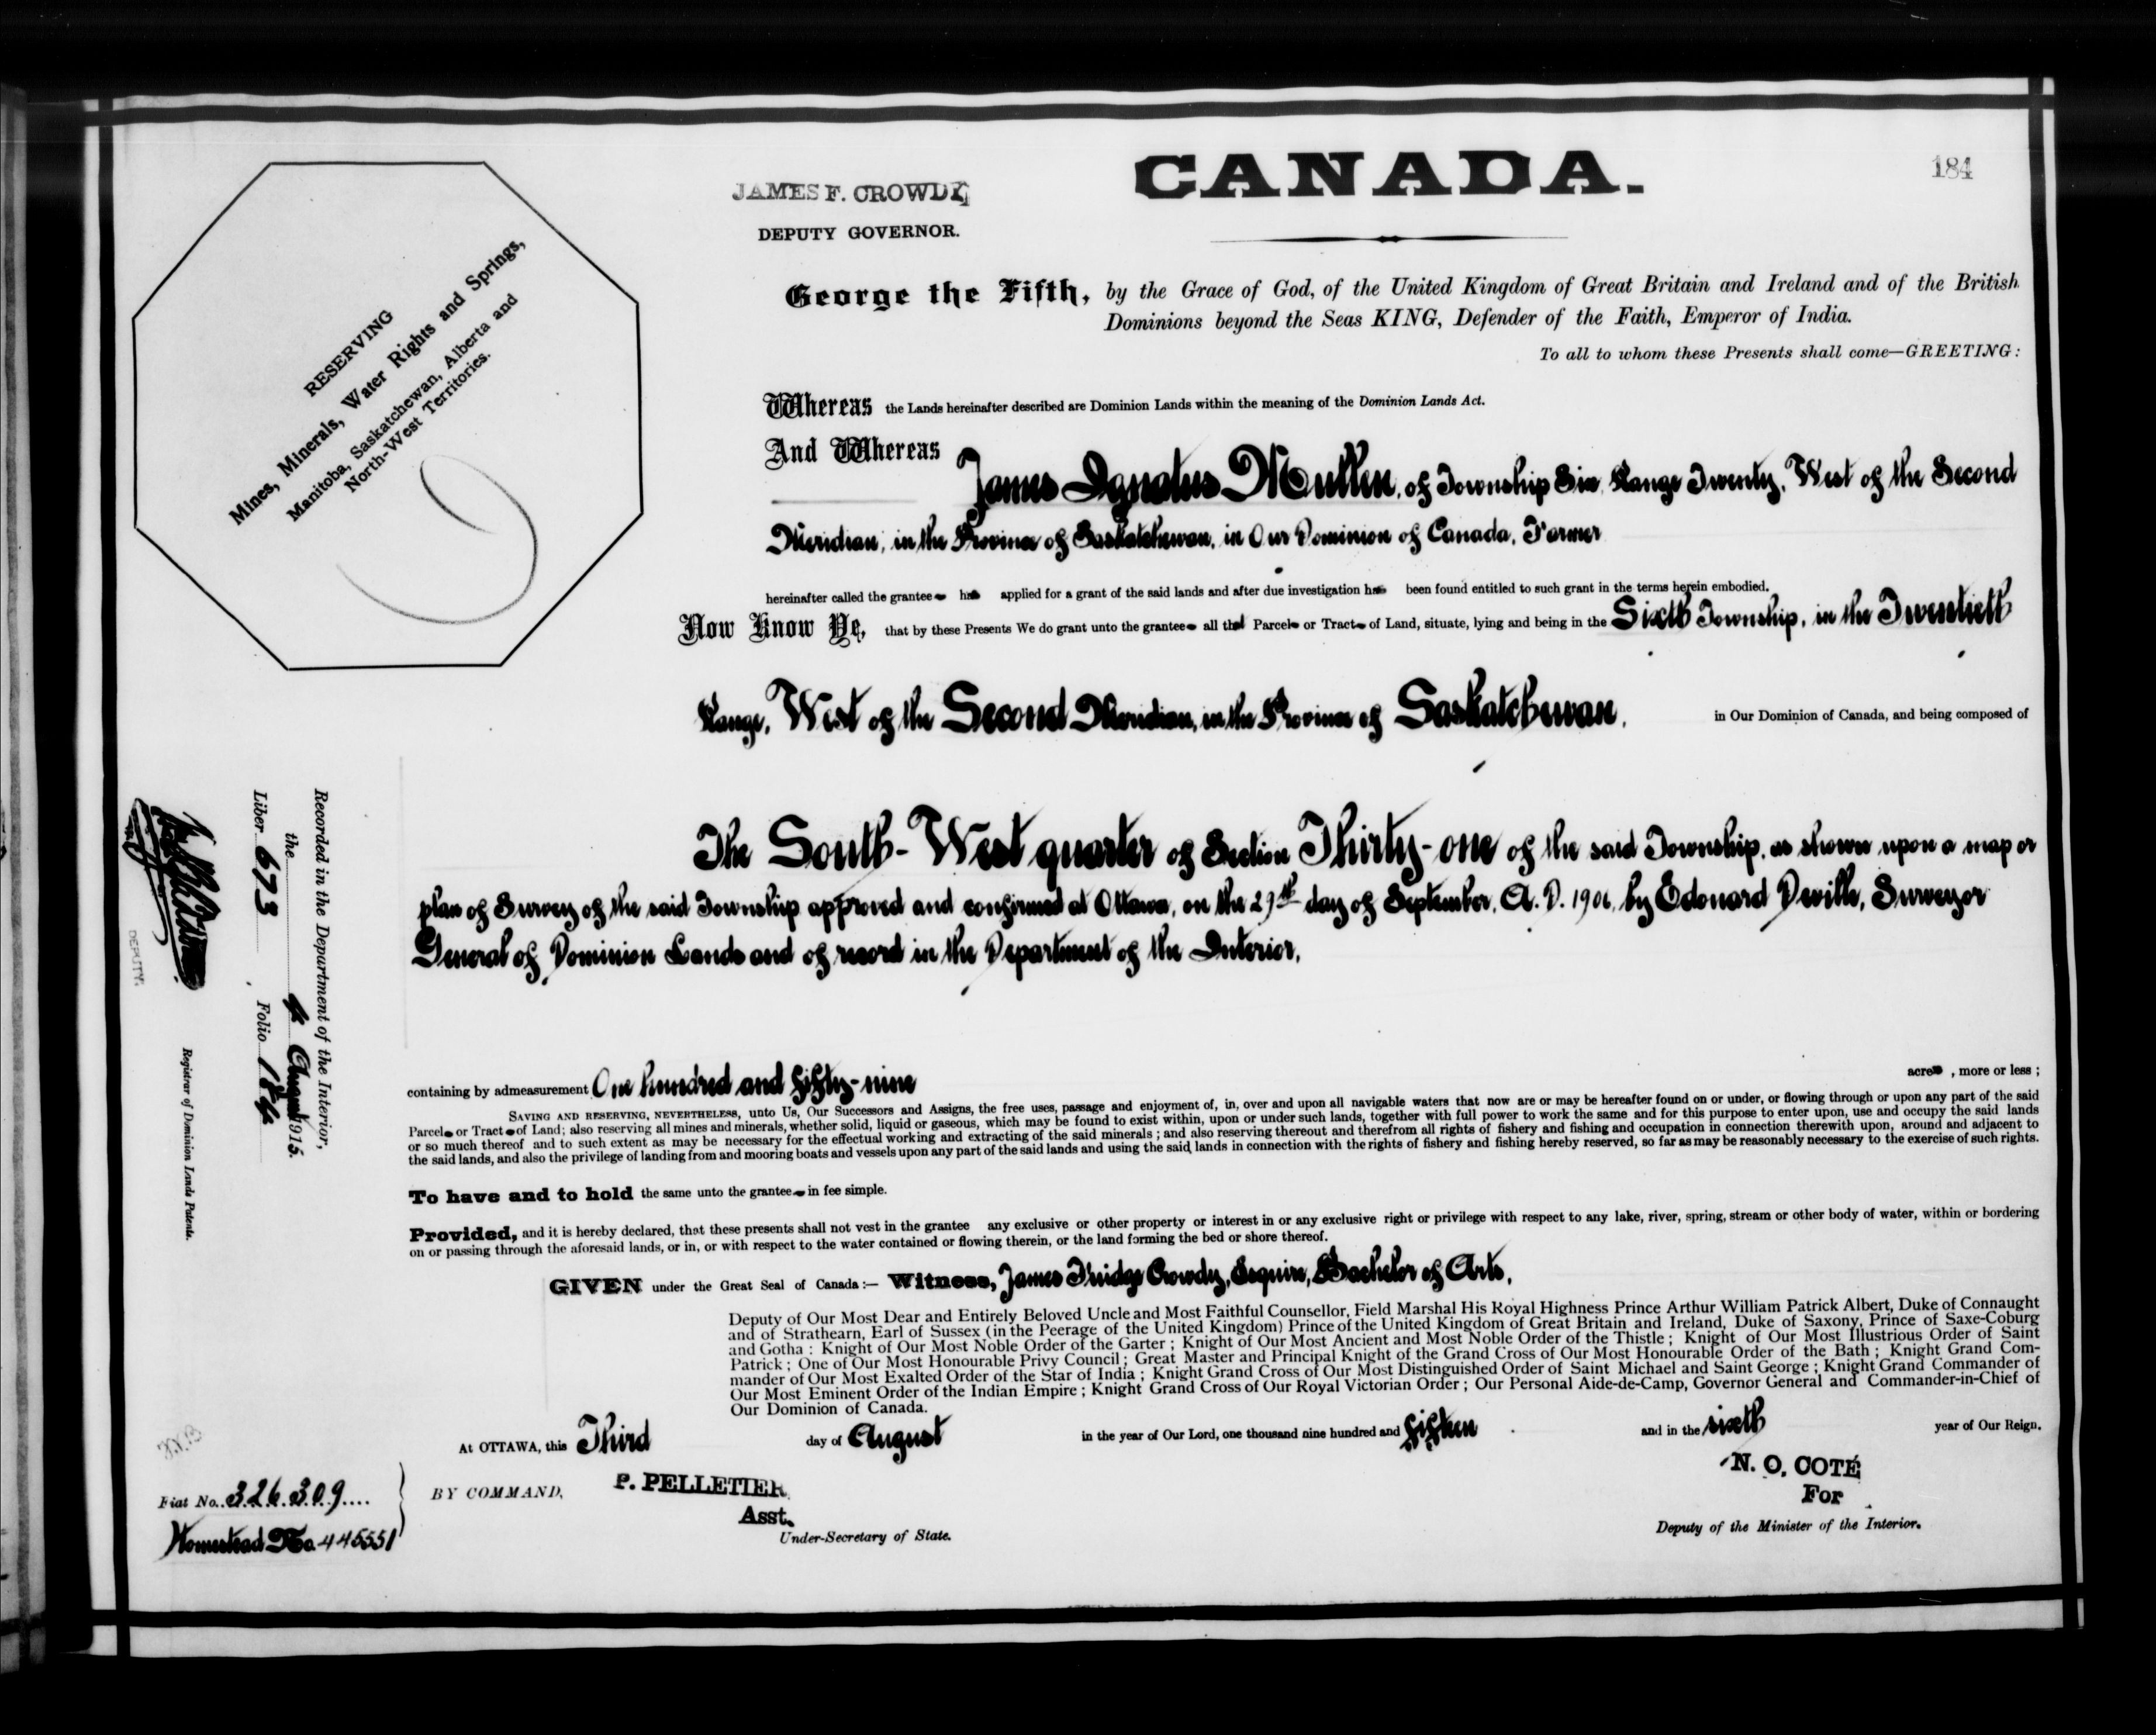 CANADA.
184
JAMES F. CROWDY,
DEPUTY GOVERNOR.
RESERVING
Mines, Minerals, Water Rights and Springs,
Manitoba, Saskatchewan, Alberta and
North-West Territories.
George the Fifth, by the Grace of God, of the United Kingdom of Great Britain and Ireland and of the British
Dominions beyond the Seas KING, Defender of the Faith, Emperor of India.
To all to whom these Presents shall come—GREETING:
Whereas the Lands hereinafter described are Dominion Lands within the meaning of the Dominion Lands Act.
And Whereas James Ignatus Mullen, of Township Six, Range Twenty, West of the Second
Meridian, in the Province of Saskatchewan, in Our Dominion of Canada, Farmer
hereinafter called the grantee has applied for a grant of the said lands and after due investigation has been found entitled to such grant in the terms herein embodied.
Now Know Ye, that by these Presents We do grant unto the grantee all that Parcel or Tract of Land, situate, lying and being in the Sixth Township, in the Twentieth
Range, West of the Second Meridian, in the Province of Saskatchewan, in Our Dominion of Canada, and being composed of
The South-West quarter of Section Thirty-one of the said Township, as shown upon a map or
plan of Survey of the said Township approved and confirmed at Ottawa, on the 29th day of September, A.D. 1906, by Edouard Deville, Surveyor
General of Dominion Lands and of record in the Department of the Interior.
containing by admeasurement One hundred and fifty-nine acres, more or less;
SAVING AND RESERVING, NEVERTHELESS, unto Us, Our Successors and Assigns, the free uses, passage and enjoyment of, in, over and upon all navigable waters that now are or may be hereafter found on or under, or flowing through or upon any part of the said
Parcel or Tract of Land; also reserving all mines and minerals, whether solid, liquid or gaseous, which may be found to exist within, upon or under such lands, together with full power to work the same and for this purpose to enter upon, use and occupy the said lands
or so much thereof and to such extent as may be necessary for the effectual working and extracting of the said minerals; and also reserving thereout and therefrom all rights of fishery and fishing and occupation in connection therewith upon, around and adjacent to
the said lands, and also the privilege of landing from and mooring boats and vessels upon any part of the said lands and using the said lands in connection with the rights of fishery and fishing hereby reserved, so far as may be reasonably necessary to the exercise of such rights.
To have and to hold the same unto the grantee in fee simple.
Provided, and it is hereby declared, that these presents shall not vest in the grantee any exclusive or other property or interest in or any exclusive right or privilege with respect to any lake, river, spring, stream or other body of water, within or bordering
on or passing through the aforesaid lands, or in, or with respect to the water contained or flowing therein, or the land forming the bed or shore thereof.
GIVEN under the Great Seal of Canada:— Witness, James Fridge Crowdy, Esquire, Bachelor of Arts,
Deputy of Our Most Dear and Entirely Beloved Uncle and Most Faithful Counsellor, Field Marshal His Royal Highness Prince Arthur William Patrick Albert, Duke of Connaught
and of Strathearn, Earl of Sussex (in the Peerage of the United Kingdom) Prince of the United Kingdom of Great Britain and Ireland, Duke of Saxony, Prince of Saxe-Coburg
and Gotha: Knight of Our Most Noble Order of the Garter; Knight of Our Most Ancient and Most Noble Order of the Thistle; Knight of Our Most Illustrious Order of Saint
Patrick; One of Our Most Honourable Privy Council; Great Master and Principal Knight of the Grand Cross of Our Most Honourable Order of the Bath; Knight Grand Com-
mander of Our Most Exalted Order of the Star of India; Knight Grand Cross of Our Most Distinguished Order of Saint Michael and Saint George; Knight Grand Commander of
Our Most Eminent Order of the Indian Empire; Knight Grand Cross of Our Royal Victorian Order; Our Personal Aide-de-Camp, Governor General and Commander-in-Chief of
Our Dominion of Canada.
At OTTAWA, this Third day of August in the year of Our Lord, one thousand nine hundred and fifteen and in the sixth year of Our Reign.
BY COMMAND,
P. PELLETIER
Asst.
Under-Secretary of State.
N. O. COTÉ
For
Deputy of the Minister of the Interior.
Fiat No. 326309
Homestead No. 445551
Recorded in the Department of the Interior,
the 4 August 1915.
Liber 673 Folio 184
DEPUTY.
Registrar of Dominion Lands Patents.